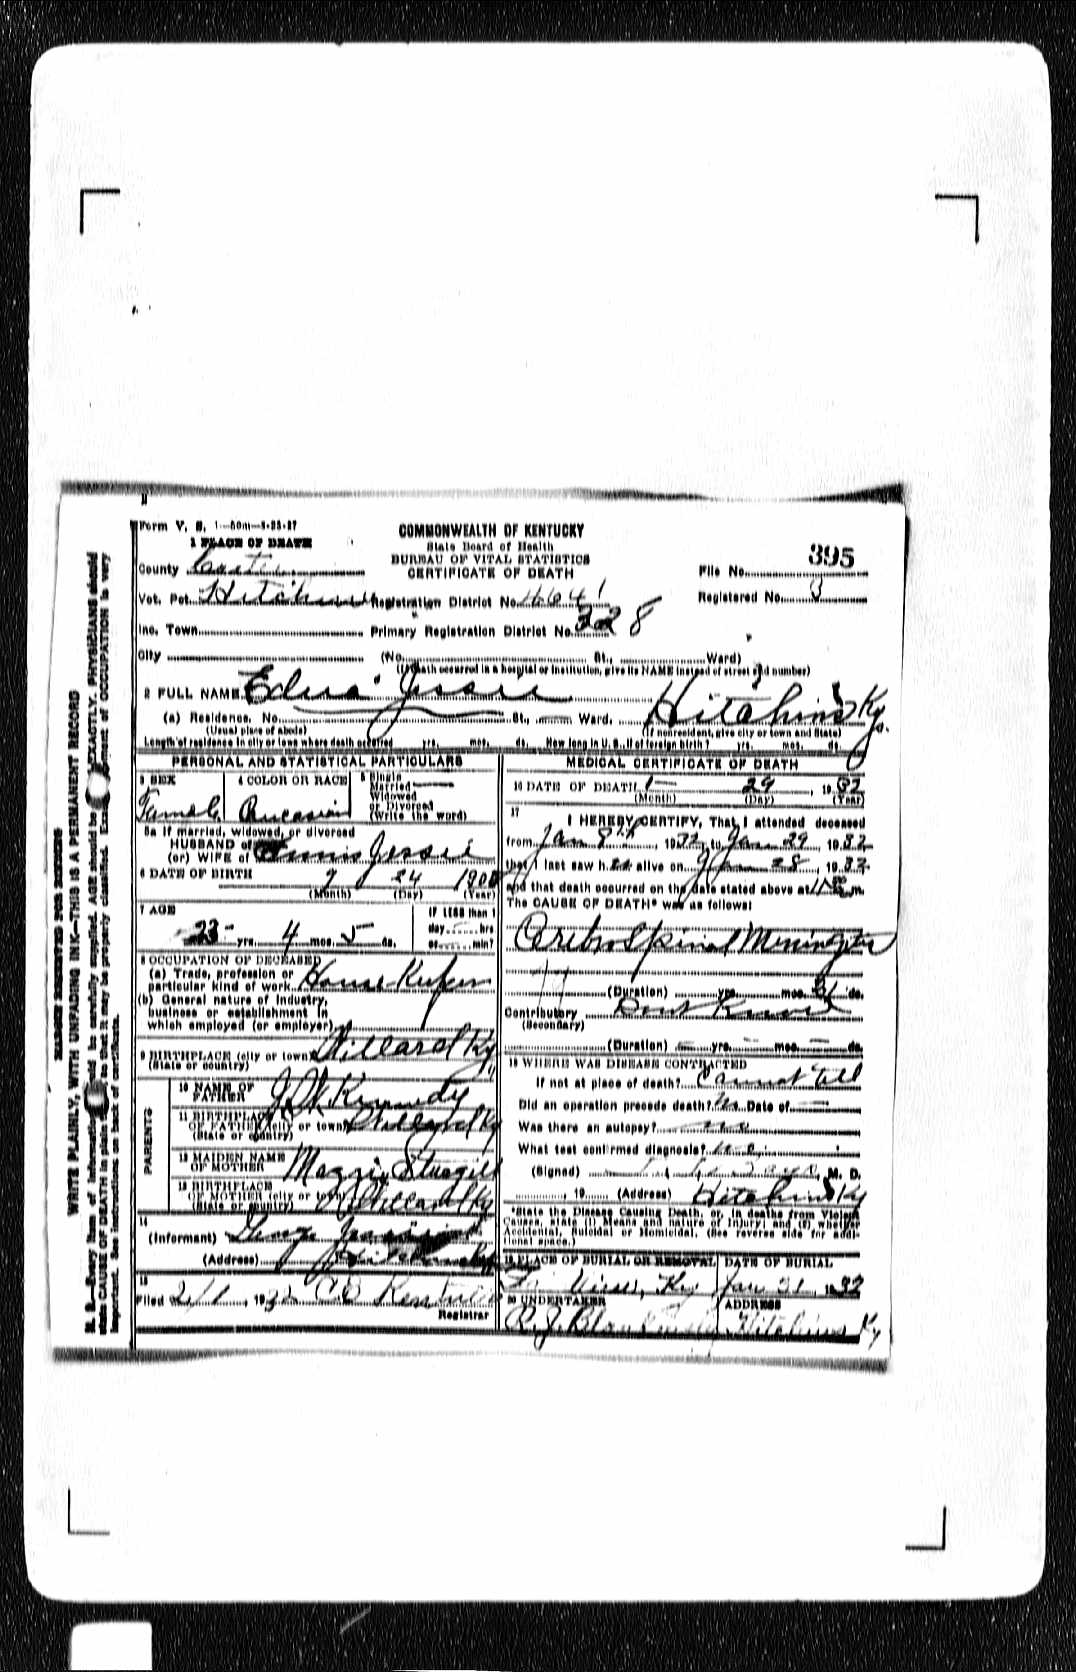 Form V. S. 1—50m—3-23-27
1 PLACE OF DEATH
COMMONWEALTH OF KENTUCKY
State Board of Health
BUREAU OF VITAL STATISTICS
CERTIFICATE OF DEATH
395
County Carter
File No.
Vot. Pct. Hitchins Registration District No. 4641
Registered No. 3
Inc. Town Primary Registration District No. 328
City (No. St., Ward)
(If death occurred in a hospital or institution, give its NAME instead of street and number)
2 FULL NAME Edna Jessie
(a) Residence. No. St., Ward. Hitchins Ky.
(Usual place of abode) (If nonresident, give city or town and State)
Length of residence in city or town where death occurred yrs. mos. ds. How long in U. S., if of foreign birth? yrs. mos. ds.
PERSONAL AND STATISTICAL PARTICULARS
3 SEX 4 COLOR OR RACE 5 Single
Married
Widowed
or Divorced
(Write the word)
Female
5a If married, widowed, or divorced
HUSBAND of
(or) WIFE of Jessie
6 DATE OF BIRTH 9 24 1908
(Month) (Day) (Year)
7 AGE
23 yrs. 4 mos. 5 ds.
If LESS than 1
day hrs
or min?
8 OCCUPATION OF DECEASED
(a) Trade, profession or
particular kind of work House Keeper
(b) General nature of industry,
business or establishment in
which employed (or employer)
9 BIRTHPLACE (city or town) Willard Ky
(State or country)
PARENTS
10 NAME OF
FATHER J W Kennedy
11 BIRTHPLACE
OF FATHER (city or town) Willard Ky
(State or country)
12 MAIDEN NAME
OF MOTHER Maggie Sturgill
13 BIRTHPLACE
OF MOTHER (city or town) Willard Ky
(State or country)
14
(Informant) George Jessie
(Address) Hitchins Ky
15
Filed 2/1, 1932
Registrar
MEDICAL CERTIFICATE OF DEATH
16 DATE OF DEATH 1 29, 1932
(Month) (Day) (Year)
17
I HEREBY CERTIFY, That I attended deceased
from Jan 9th, 1932, to Jan 29, 1932
that I last saw her alive on Jan 28, 1932
and that death occurred on the date stated above at m.
The CAUSE OF DEATH* was as follows:
Cerebro Spinal Meningitis
(Duration) yrs. mos. 21 ds.
Contributory Dont Know
(Secondary)
(Duration) yrs. mos. ds.
18 WHERE WAS DISEASE CONTRACTED
If not at place of death? Cannot tell
Did an operation precede death? No Date of
Was there an autopsy? no
What test confirmed diagnosis? no
(Signed) M. D.
, 19 (Address) Hitchins Ky
*State the Disease Causing Death, or, in deaths from Violent
Causes, state (1) Means and nature of Injury; and (2) whether
Accidental, Suicidal or Homicidal. (See reverse side for addi-
tional space.)
19 PLACE OF BURIAL OR REMOVAL DATE OF BURIAL
View, Ky Jan 31, 1932
20 UNDERTAKER ADDRESS
R. J. Hitchins Ky
MARGIN RESERVED FOR BINDING
WRITE PLAINLY, WITH UNFADING INK—THIS IS A PERMANENT RECORD
N. B.—Every item of information should be carefully supplied. AGE should be EXACTLY. PHYSICIANS should
state CAUSE OF DEATH in plain so that it may be properly classified. Exact statement of OCCUPATION is very
important. See instructions on back of certificate.